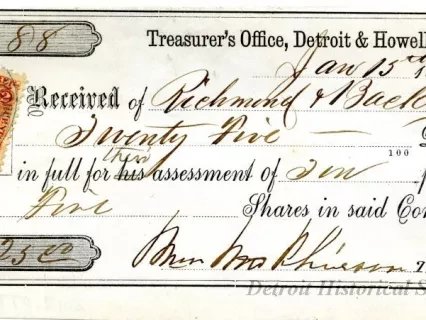 88
Treasurer's Office, Detroit & Howell
Jan 15
Received of Richmond & Back
Twenty Five
100
their
in full for his assessment of Ten
Five Shares in said Co
25
Detroit Historical S